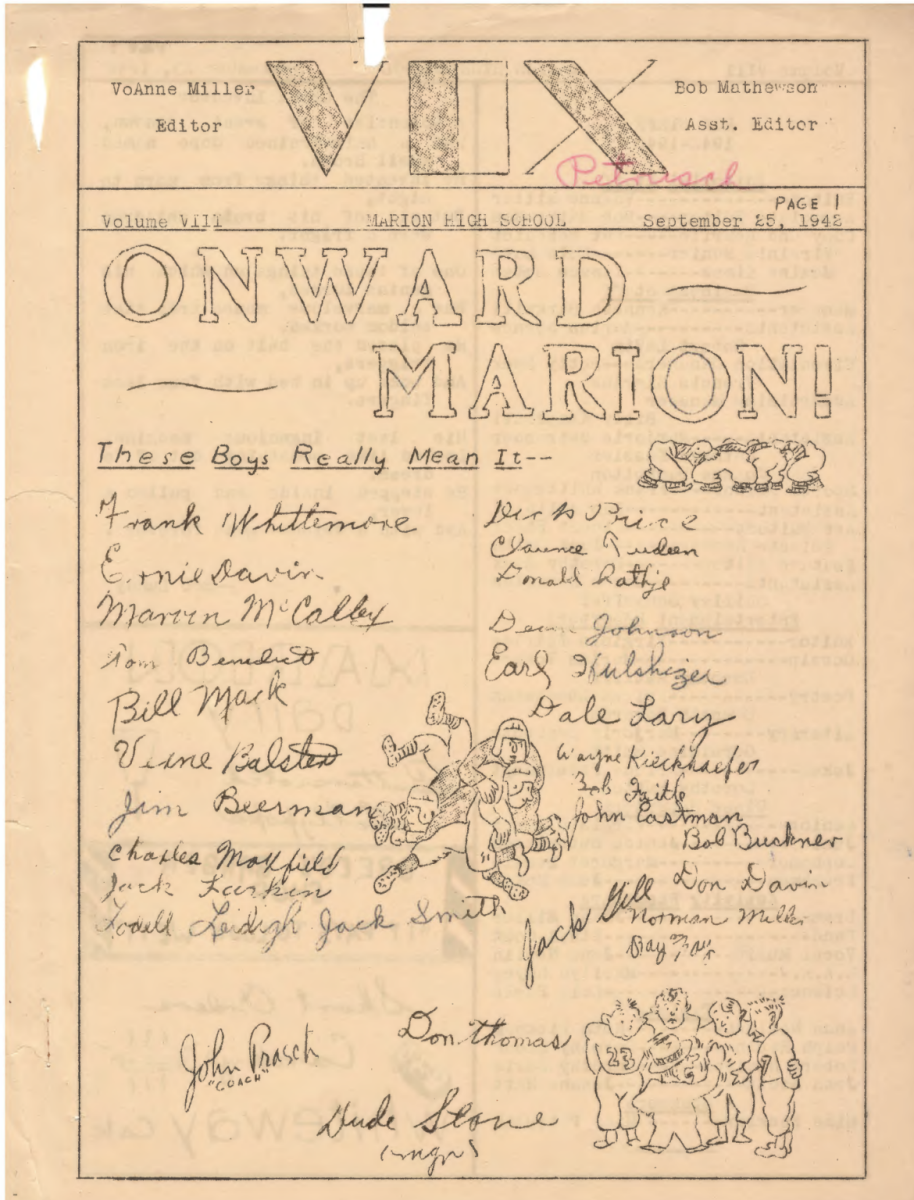 VoAnne Miller
Editor
VOX
Bob Mathewson
Asst. Editor
Petrasch
PAGE 1
Volume VIII MARION HIGH SCHOOL September 25, 1942
ONWARD —
— MARION!
These Boys Really Mean It--
Frank Whittemore
Ernie Davin
Marvin McCalley
Tom Benedict
Bill Mack
Verne Balster
Jim Beerman
Charles Maxfield
Jack Larkin
Lodell Leidigh Jack Smith
Dick Price
Clarence
Donald Rathje
Dean Johnson
Earl Hulshizer
Dale Lary
Wayne Kieckhaefer
Bob Frith
John Eastman
Bob Buckner
Don Davin
Jack Gill
Norman Miller
Ray
23
Don Thomas
John Prasch
"COACH"
Dude Stone
(mgr)